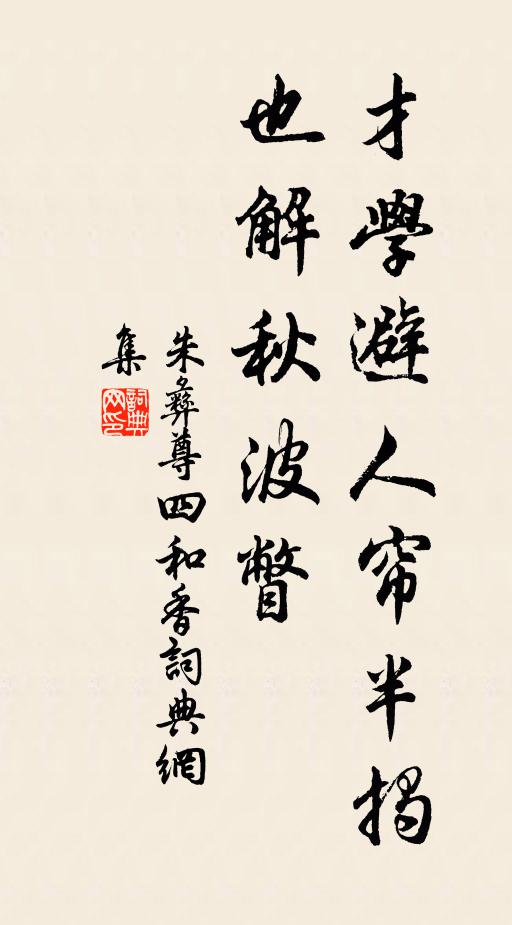 才學避人帘半揭
也解秋波瞥
朱彝尊四和香詞典網
集
詞典網印